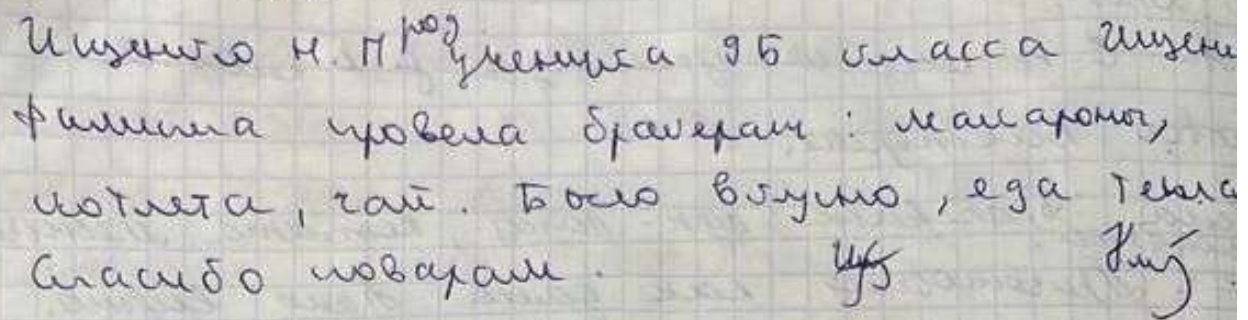 Ищенко Н.П род ученика 9Б класса Ищенк
Филиппа провела бракераж: макароны,
котлета, чай. Было вкусно, еда тепла
Спасибо поварам.